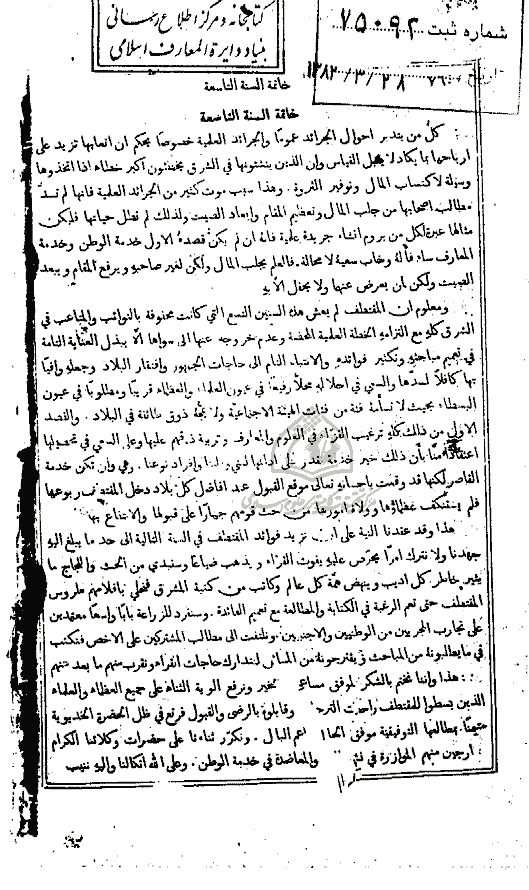 كتابخانه و مركز اطلاع رسانى
بنياد دايرة المعارف اسلامى
شماره ثبت ٧٥٠٩٢
تاريخ ١٣٨٢/٣/٢٨
خاتمة السنة التاسعة
خاتمة السنة التاسعة
كلُّ من يتدبر احوال الجرائد عمومًا والجرائد العلمية خصوصًا يحكم ان اتعابها تزيد على
ارباحها بما يكاد لا يحتمل القياس وإن الذين ينشئونها في الشرق يخطئون اكبر خطاء اذا اتخذوها
وسيلة لاكتساب المال وتوفير الثروة. وهذا سبب موت كثير من الجرائد العلمية فانها لم تسدَّ
مطالب اصحابها من جلب المال وتعظيم المقام وإبعاد الصيت ولذلك لم تطل حياتها فليكن
مثالها عبرة لكل من يروم انشاء جريدة علمية فانه ان لم يكن قصدهُ الاول خدمة الوطن وخدمة
المعارف ساء فألهُ وخاب سعيهُ لا محالة. فالعلم يجلب المال ولكن لغير صاحبهِ ويرفع المقام ويبعد
الصيت ولكن لمن يعرض عنها ولا يحفل
ومعلوم ان المقتطف لم يعش هذه السنين التسع التي كانت محفوفة بالنوائب والمتاعب في
الشرق كلهِ مع التزامهِ الخطة العلمية المحضة وعدم خروجه عنها الى سواها الا ببذل العناية التامة
في تعميم مباحثهِ وتكثير فوائدهِ والانتباه التام الى حاجات الجمهور وإفتقار البلاد وجعلهِ وافيًا
بها كافلًا لسدّها والسعي في احلالهِ محلًّا رفيعًا في عيون العلماء والعظماء قريبًا ومطلوبًا في عيون
البسطاء بحيث لا تسأمهُ فئة من فئات الهيئة الاجتماعية ولا يمجّهُ ذوق طائفة في البلاد. والقصد
الاول من ذلك كلهِ ترغيب القراء في العلوم والمعارف وتربية ذوقهم عليها وعلى السعي في تحصيلها
اعتقادًا منا بأن ذلك خير خدمة نقدر على وإفراد نوعنا. وهي وإن تكن خدمة
القاصر لكنها قد وقعت باحسانهِ تعالى موقع القبول عند افاضل كل بلاد دخل المقتطف ربوعها
فلم يستنكف عظماؤها وولاة امورها من حث قومهم جهارًا على قبولها والانتفاع بها
هذا وقد عقدنا النية على ان نزيد فوائد المقتطف في السنة التالية الى حد ما يبلغ اليهِ
جهدنا ولا نترك امرًا يحرص عليهِ يفوت القراء ويذهب ضياعًا وسنبدي من الحث والالحاح ما
يثير خاطر كل اديب وينهض همة كل عالم وكاتب من كتبة المشرق فتتحلى باقلامهم طروس
المقتطف حتى تعم الرغبة في الكتابة والمطالعة مع تعميم الفائدة. وسنفرد للزراعة بابًا واسعًا معتمدين
على تجارب المجربين من الوطنيين والاجنبيين. ونلتفت الى مطالب المشتركين على الاخص فنكتب
في ما يطالبونه من المباحث ويقترحونهُ من المسائل لنتدارك حاجات القراء ونقرب منهم ما بعد عنهم
هذا وإننا نختم بالشكر لموفق مساعي الخير ونرفع الوية الثناء على جميع العظماء والعلماء
الذين بسطوا للمقتطف راحات وقابلوهُ بالرضى والقبول فرتع في ظل الحضرة الخديوية
بمطالعها التوفيقية موفق ناعم البال. ونكرّر ثناءنا على حضرات وكلائنا الكرام
راجين منهم الموازرة في والمعاضدة في خدمة الوطن. وعلى الله اتكالنا وإليهِ ننيب